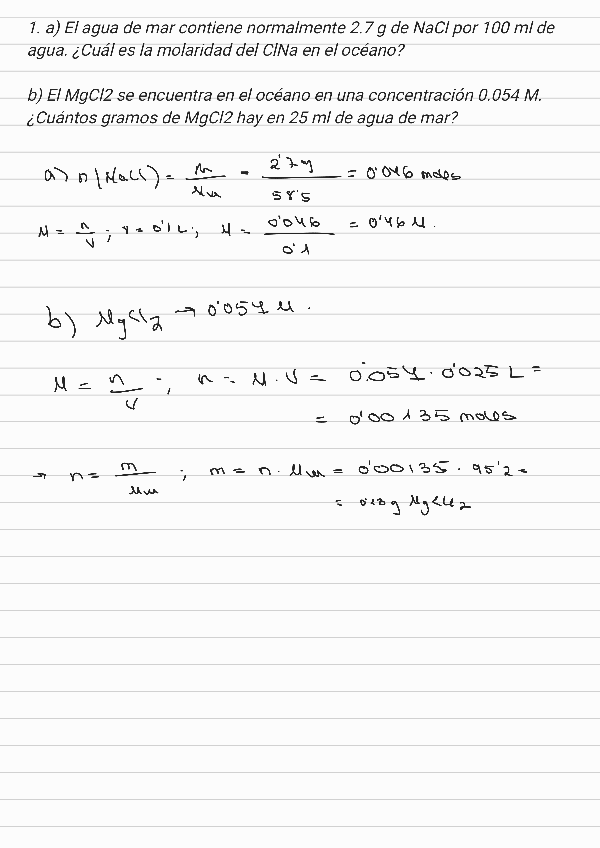 1. a) El agua de mar contiene normalmente 2.7 g de NaCl por 100 ml de
agua. ¿Cuál es la molaridad del ClNa en el océano?
b) El MgCl2 se encuentra en el océano en una concentración 0.054 M.
¿Cuántos gramos de MgCl2 hay en 25 ml de agua de mar?
a) n (NaCl) = m / Mm = 2'7g / 58'5 = 0'046 moles
M = n / V ; V = 0'1 L ; M = 0'046 / 0'1 = 0'46 M.
b) MgCl2 → 0'054 M.
M = n / V ; n = M · V = 0'054 · 0'025 L =
= 0'00135 moles
→ n = m / Mm ; m = n · Mm = 0'00135 · 95'2 =
= 0'13 g MgCl2